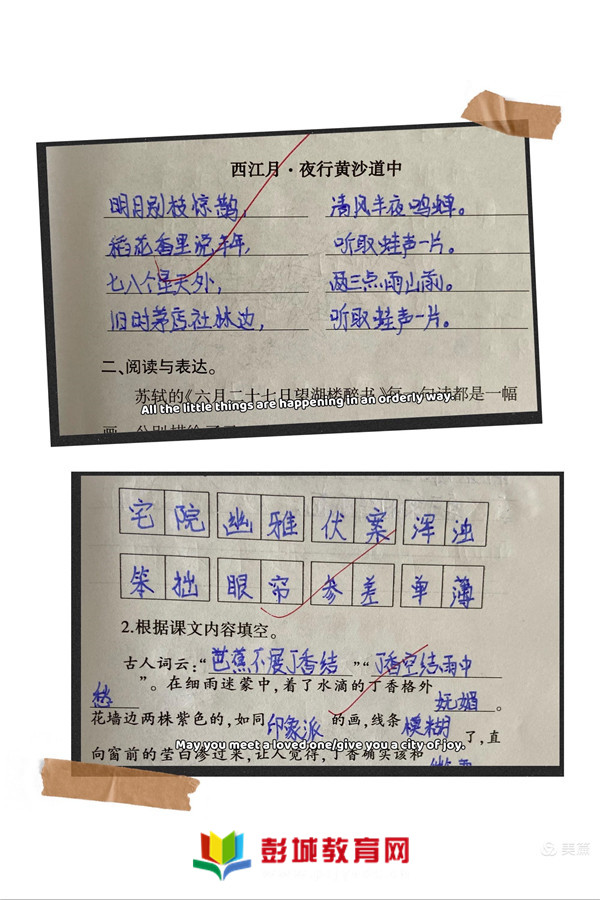 西江月·夜行黄沙道中
明月别枝惊鹊, 清风半夜鸣蝉。
稻花香里说丰年, 听取蛙声一片。
七八个星天外, 两三点雨山雨。
旧时茅店社林边, 听取蛙声一片。
二、阅读与表达。
苏轼的《六月二十七日望湖楼醉书》每一句诗都是一幅
All the little things are happening in an orderly way.
宅院 幽雅 伏案 浑浊
笨拙 眼帘 参差 单薄
2.根据课文内容填空。
古人词云:“芭蕉不展丁香结”“丁香空结雨中
愁”。在细雨迷蒙中,着了水滴的丁香格外妩媚。
花墙边两株紫色的,如同印象派的画,线条模糊了,直
向窗前的莹白渗过来,让人觉得,丁香确实该和
May you meet a loved one/give you a city of joy.
彭城教育网
美篇